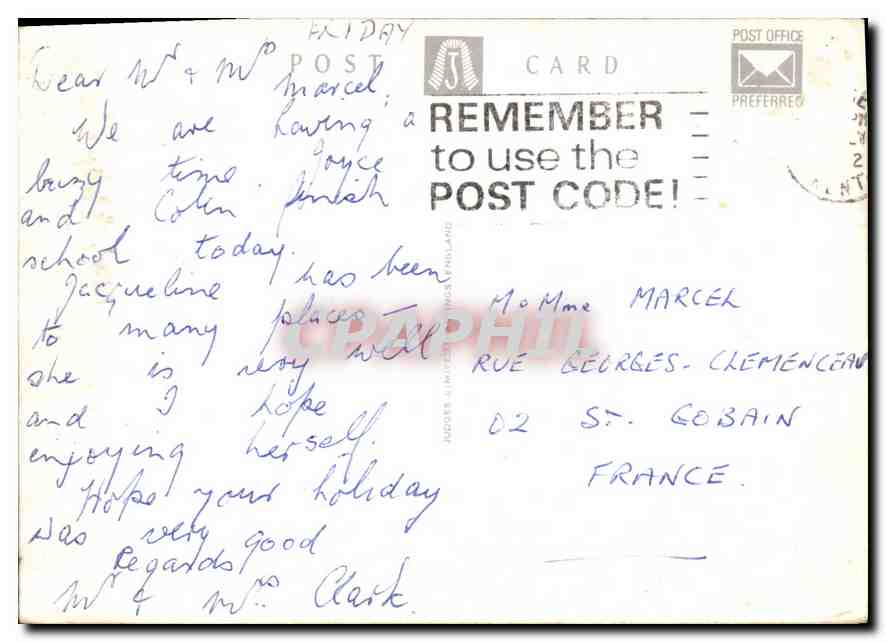 FRIDAY
POST CARD
POST OFFICE
PREFERRED
REMEMBER
to use the
POST CODE!
Dear Mr & Mrs
Marcel,
We are having a
busy time. Joyce
and Colin finish
school today.
Jacqueline has been
to many places –
she is very well
and I hope
enjoying herself.
Hope your holiday
was very good
Regards
Mr & Mrs Clark.
JUDGES LIMITED HASTINGS ENGLAND
M o Mme MARCEL
RUE GEORGES-CLEMENCEAU
02 ST. GOBAIN
FRANCE.
CPAPHIL